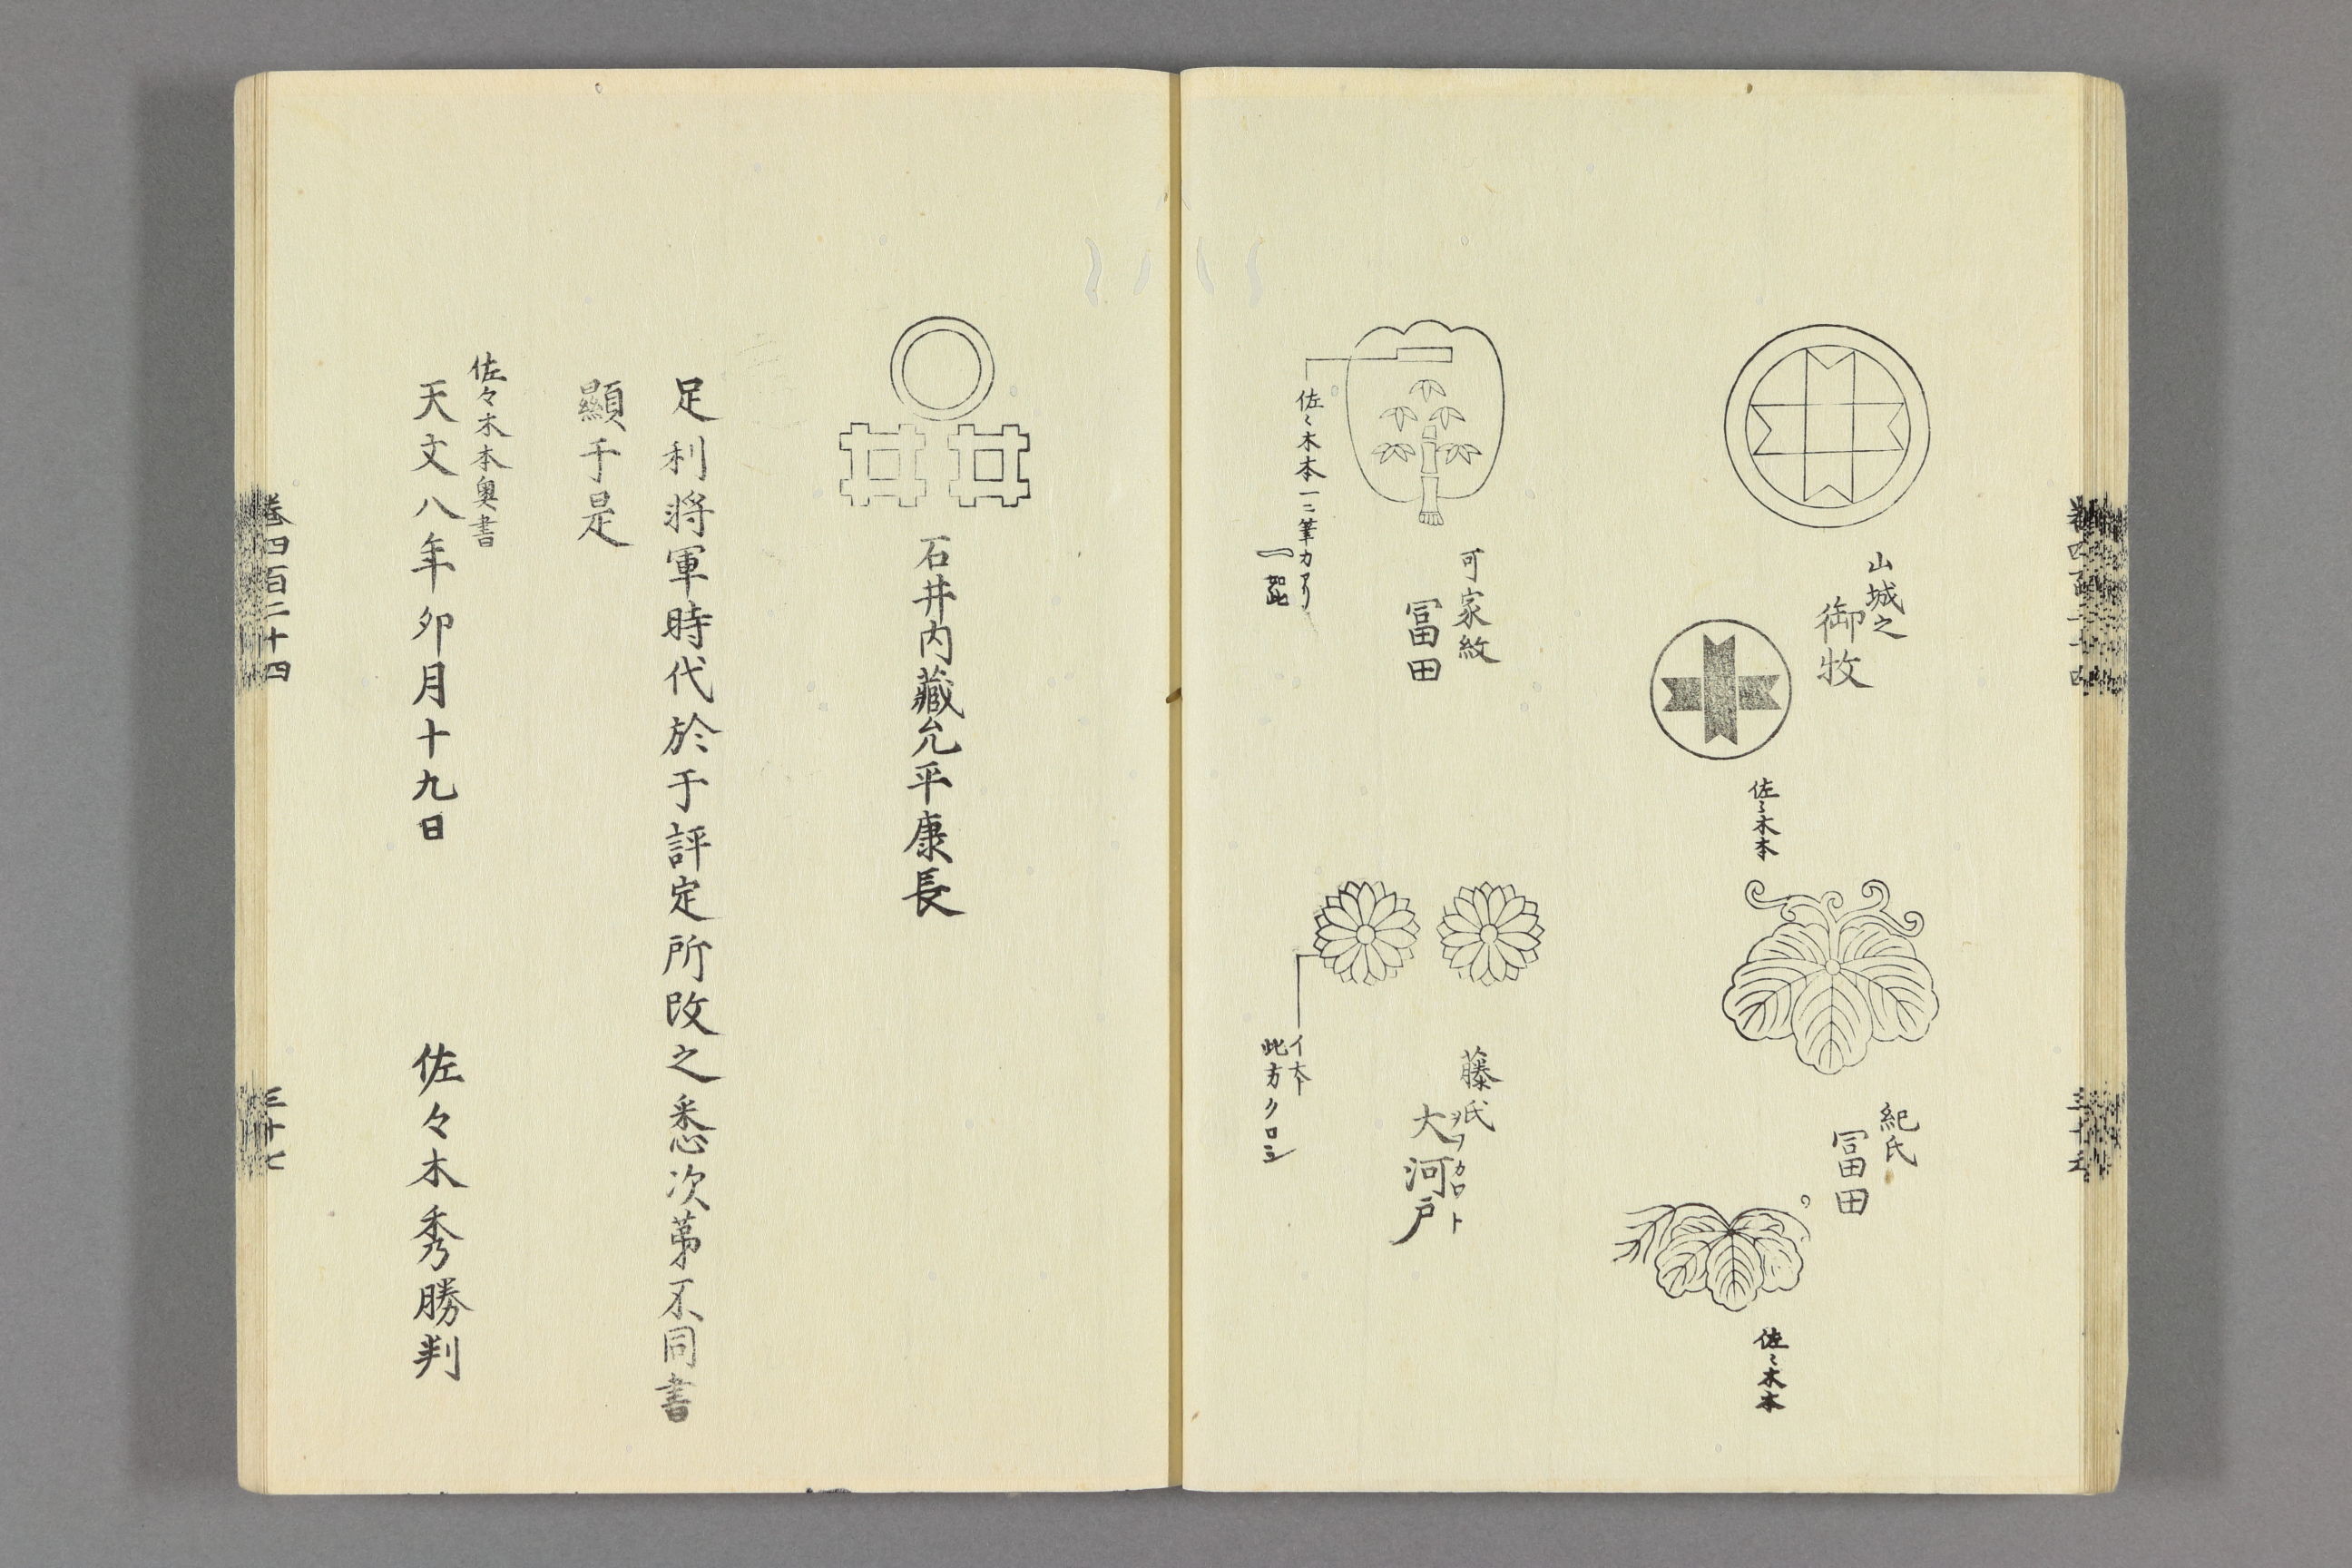 山城之
御牧
佐〻木本
紀氏
冨田
佐〻木本
可家紋
冨田
佐〻木本一ニ筆カアリ
一如此
藤氏
大河戸
ヲフカロト
イ本
此方クロシ
石井内藏允平康長
足利將軍時代於于評定所改之悉次第不同書
顯于是
佐々木本奥書
天文八年卯月十九日 佐々木秀勝判
卷四百二十四
三十七